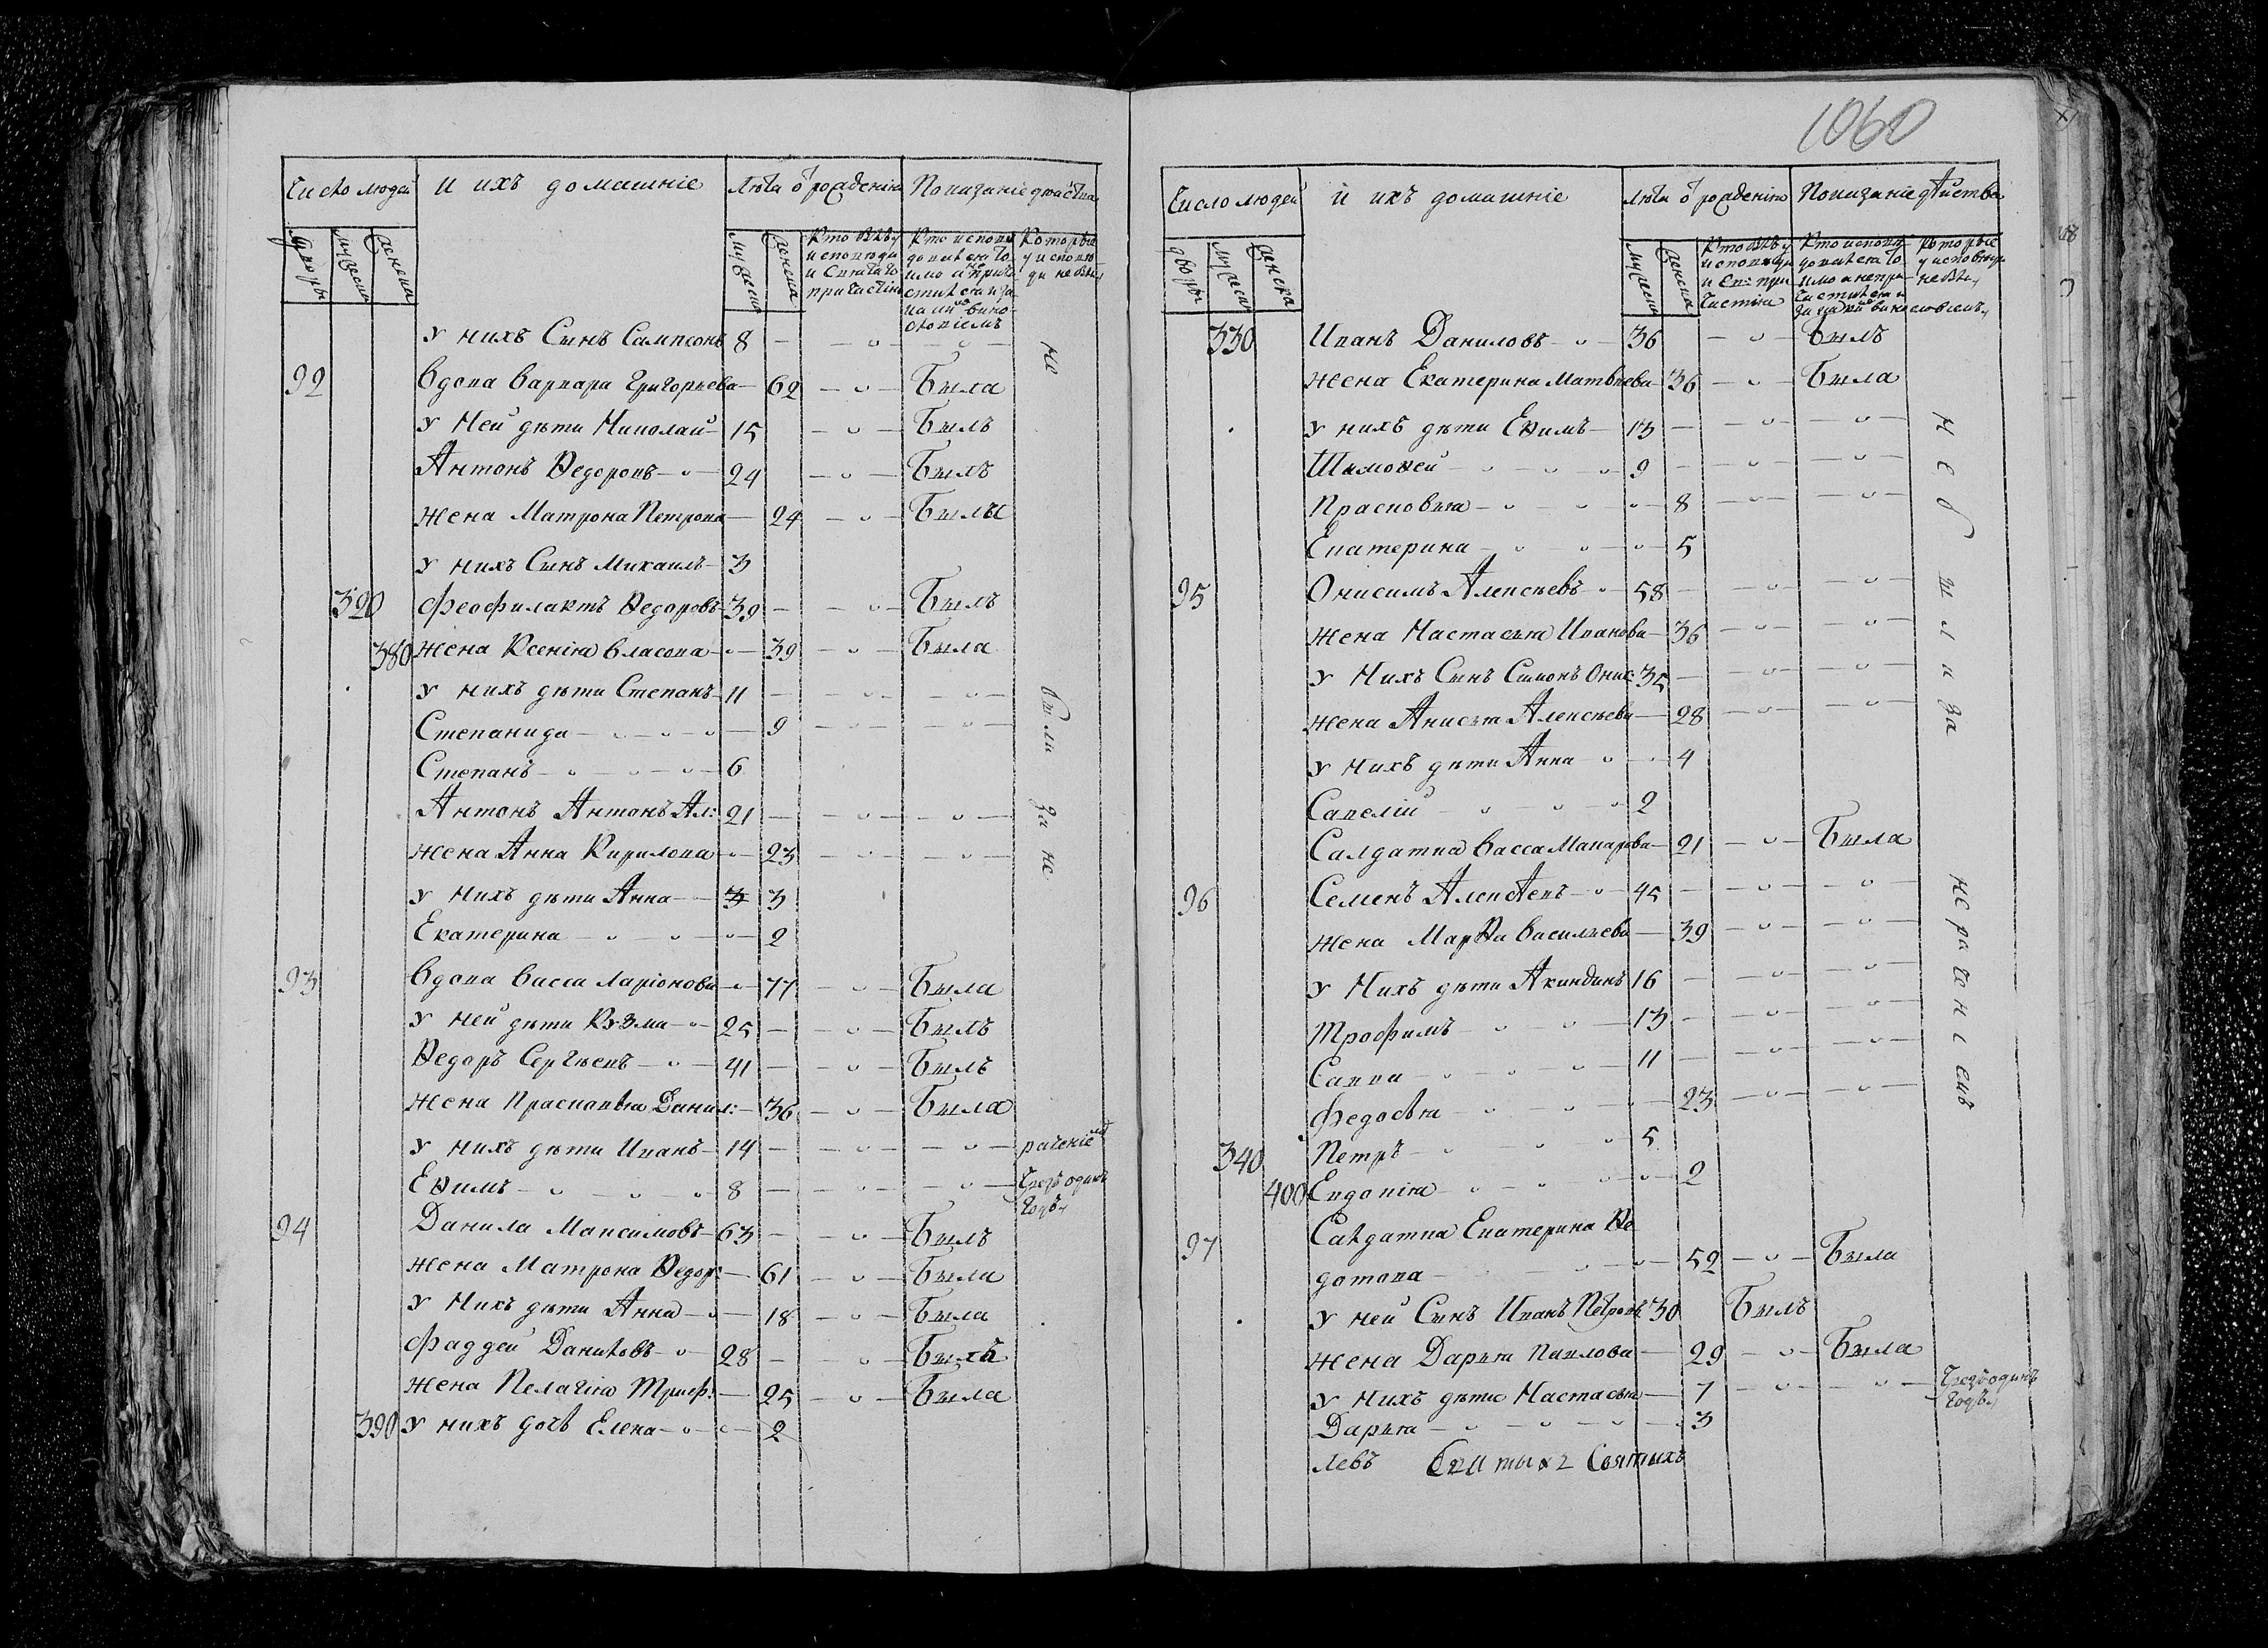 Число людей и ихъ домашніе Лѣта ѿ рожденія Показаніе дѣйства
дворы мужеска женска мужеска женска
Кто былъ у исповѣди и Святаго причастія
Кто исповѣдался токмо а не причастился и за каимъ винословіемъ
Которые у исповѣди не были
У нихъ Сынъ Сампсонъ 8
92 Вдова Варвара Григорьева 62 Была
У Ней дѣти Николай 15 Былъ
Антонъ Ѳедоровъ 24 Былъ
Жена Матрона Петрова 24 Была
У нихъ Сынъ Михаилъ 3
320 Феофилактъ Ѳедоровъ 39 Былъ
380 Жена Ксенія Власова 39 Была
У нихъ дѣти Степанъ 11
Степанида 9
Степанъ 6
Антонъ Антонъ Ал: 21
Жена Анна Кирилова 23
У нихъ дѣти Анна 3 3
Екатерина 2
93 Вдова Васса Ларіонова 77 Была
У ней дѣти Кузма 25 Былъ
Ѳедоръ Сергѣевъ 41 Былъ
Жена Прасковья Данил: 36 Была
У нихъ дѣти Иванъ 14
Еѳимъ 8
94 Данила Максимовъ 63 Былъ
Жена Матрона Ѳедор: 61 Была
У Нихъ дѣти Анна 18 Была
Фаддей Даниловъ 28 Былъ
Жена Пелагія Триф: 25 Была
390 У нихъ дочь Елена 2
не были за не
раченіемъ
Чрезъ одинъ
годъ
1060
Число людей и ихъ домашніе Лѣта ѿ рожденія Показаніе дѣйства
дворы мужеска женска мужеска женска
Кто былъ у исповѣди и Св: причастія
Кто исповѣдался токмо а не причастился и за каимъ винословіемъ
Которые у исповѣди не были
330 Иванъ Даниловъ 36 Былъ
Жена Екатерина Матвѣева 36 Была
У нихъ дѣти Еѳимъ 13
9
Прасковья 8
Екатерина 5
95 Онисимъ Алексѣевъ 58
Жена Настасья Иванова 36
У Нихъ Сынъ Симонъ Онис: 35
Жена Анисья Алексѣева 28
У Нихъ дѣти Анна 4
Савелій 2
Салдатка Васса Макарова 21 Была
96 Семенъ Алексѣевъ 45
Жена Марѳа Васильева 39
У Нихъ дѣти Акиндинъ 16
Трофимъ 13
Савва 11
Федосья 23
340 Петръ 5
400 Евдокія 2
97 Салдатка Екатерина Ѳе
дотова 52 Была
У ней Сынъ Иванъ Петровъ 30 Былъ
Жена Дарья Павлова 29 Была
У Нихъ дѣти Настасья 7
Дарья 3
Левъ Святыхъ
не были за
нераченіемъ
Чрезъ одинъ
годъ